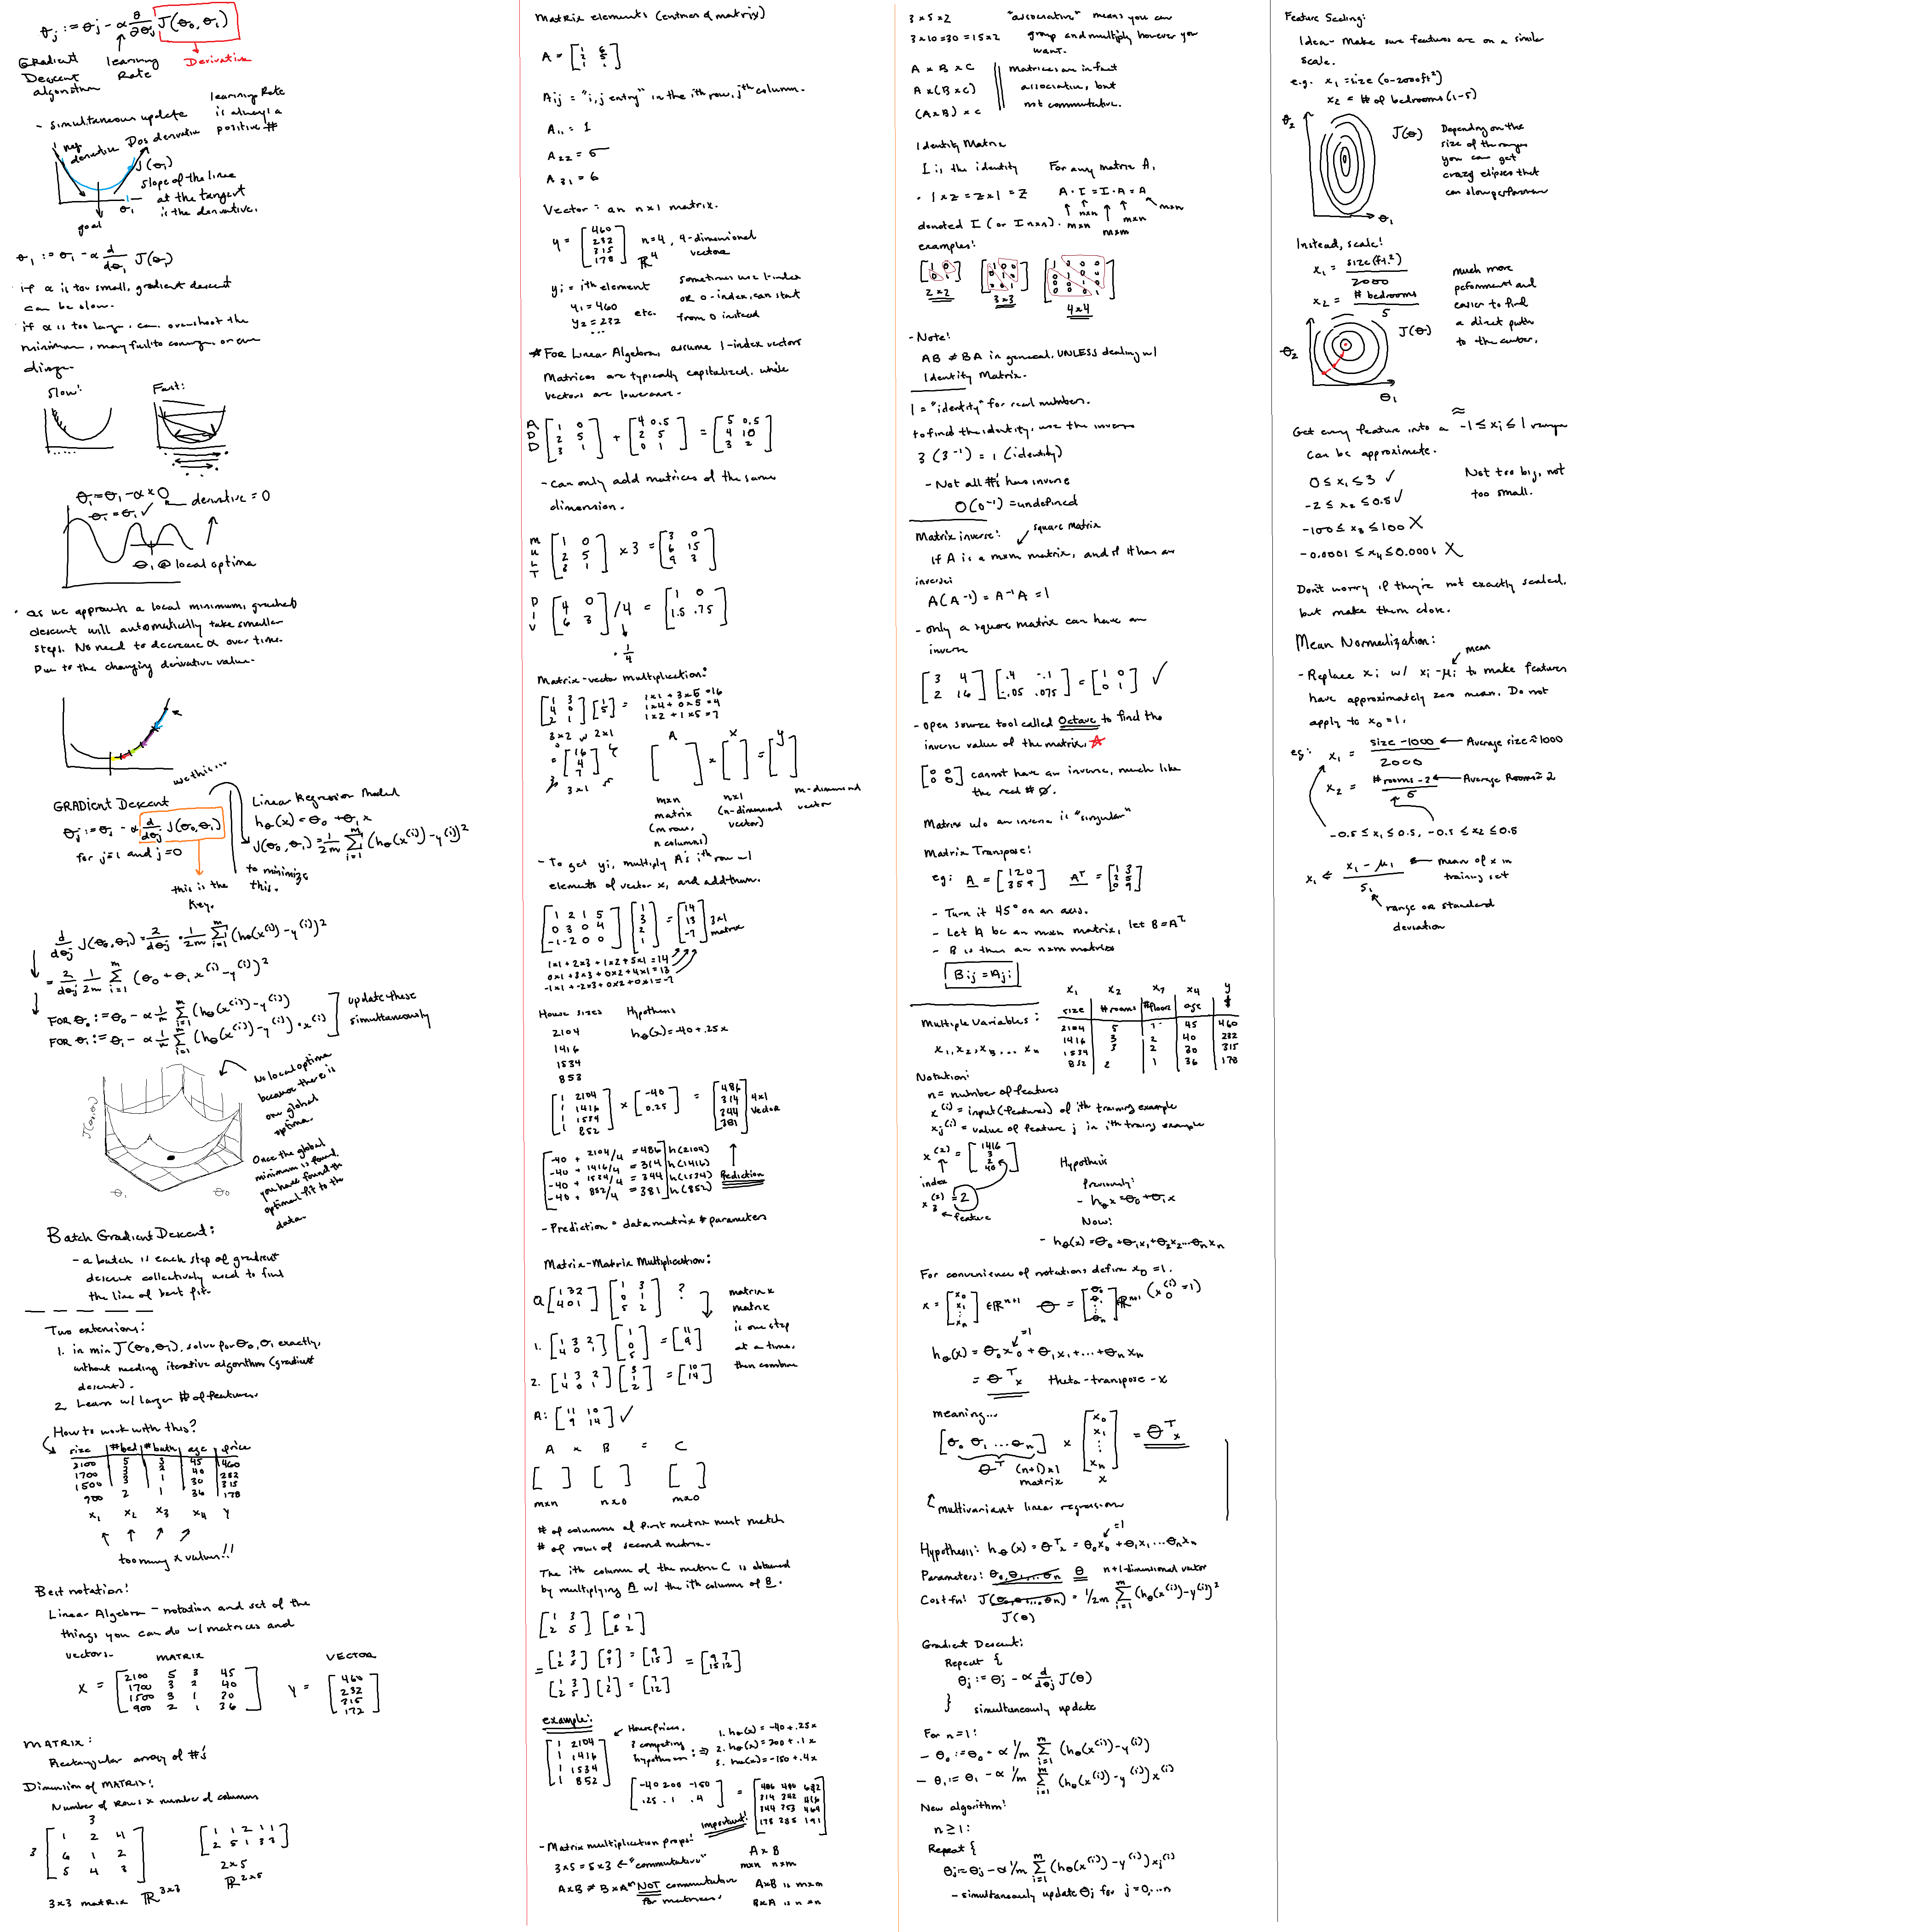 θj := θj - α ∂/∂θj J(θ0, θ1)
Gradient Descent algorithm
learning Rate
Derivative
- simultaneous update
learning Rate is always a positive #
neg derivative
Pos derivative
J(θ1)
slope of the line at the tangent is the derivative.
θ1
goal
θ1 := θ1 - α d/dθ1 J(θ1)
· if α is too small, gradient descent
can be slow.
· if α is too large, can overshoot the
minimum, may fail to converge, or even
diverge.
Slow:
Fast:
θ1 = θ1 - α × 0
derivative = 0
θ1 = θ1 ✓
θ1 @ local optima
· As we approach a local minimum, gradient
descent will automatically take smaller
steps. No need to decrease α over time.
Due to the changing derivative value.
use this...
GRADient Descent
θj := θj - α d/dθj J(θ0, θ1)
for j=1 and j=0
this is the key.
Linear Regression Model
hθ(x) = θ0 + θ1 x
J(θ0, θ1) = 1/2m Σ i=1 m (hθ(x(i)) - y(i))²
to minimize this.
d/dθj J(θ0, θ1) = 2/dθj · 1/2m Σ i=1 m (hθ(x(i)) - y(i))²
= 2/dθj 1/2m Σ i=1 m (θ0 + θ1 x(i) - y(i))²
FOR θ0 := θ0 - α 1/m Σ i=1 m (hθ(x(i)) - y(i))
FOR θ1 := θ1 - α 1/m Σ i=1 m (hθ(x(i)) - y(i)) · x(i)
update these simultaneously
J(θ0, θ1)
θ1
θ0
No local optima
because there is
one global
optima.
Once the global
minimum is found,
you have found the
optimal fit to the
data.
Batch Gradient Descent:
- a batch is each step of gradient
descent collectively used to find
the line of best fit.
Two extensions:
1. in min J(θ0, θ1), solve for θ0, θ1 exactly,
without needing iterative algorithm (gradient
descent).
2. Learn w/ larger # of features.
How to work with this?
size #bed #bath age price
2100 5 3 45 460
1700 3 2 40 232
1500 3 1 30 315
900 2 1 36 178
x1 x2 x3 x4 y
too many x values!!
Best notation!
Linear Algebra - notation and set of the
things you can do w/ matrices and
vectors.
MATRIX
VECTOR
X = [2100 5 3 45
1700 3 2 40
1500 3 1 30
900 2 1 36]
Y = [460
232
315
172]
MATRIX:
Rectangular array of #'s
Dimension of MATRIX:
Number of rows × number of columns
3
3 [1 2 4
6 1 2
5 4 3]
[1 1 2 1 1
2 5 1 3 3]
2×5
3×3 matrix ℝ3×3
ℝ2×5
Matrix elements (entries of matrix)
A = [1 6
2 5
1 1]
Aij = "i,j entry" in the ith row, jth column.
A11 = 1
A22 = 5
A31 = 6
Vector: an n×1 matrix.
y = [460
232
315
178]
n=4, 4-dimensional vectors
ℝ4
yi = ith element
y1 = 460
y2 = 232
etc.
...
sometimes use 1-index
or 0-index, can start
from 0 instead
* For Linear Algebra, assume 1-index vectors
Matrices are typically capitalized, while
vectors are lowercase.
ADD [1 0
2 5
3 1] + [4 0.5
2 5
0 1] = [5 0.5
4 10
3 2]
- can only add matrices of the same
dimension.
MULT [1 0
2 5
3 1] × 3 = [3 0
6 15
9 3]
DIV [4 0
6 3] /4 = [1 0
1.5 .75]
· 1/4
Matrix-vector multiplication:
[1 3
4 0
2 1] [1
5] =
1×1 + 3×5 = 16
1×4 + 0×5 = 4
1×2 + 1×5 = 7
3×2 2×1
[16
4
7]
3×1
A × x = y
m×n matrix (m rows, n columns)
n×1 (n-dimensional vector)
m-dimensional vector
- To get yi, multiply A's ith row w/
elements of vector x, and add them.
[1 2 1 5
0 3 0 4
-1 -2 0 0] [1
3
2
1] = [14
13
-7] 3×1 matrix
1×1 + 2×3 + 1×2 + 5×1 = 14
0×1 + 3×3 + 0×2 + 4×1 = 13
-1×1 + -2×3 + 0×2 + 0×1 = -7
House sizes
2104
1416
1534
853
Hypothesis
hθ(x) = -40 + .25x
[1 2104
1 1416
1 1534
1 852] × [-40
0.25] = [486
314
344
381] 4×1 vector
-40 + 2104/4 = 486 h(2104)
-40 + 1416/4 = 314 h(1416)
-40 + 1534/4 = 344 h(1534)
-40 + 852/4 = 381 h(852)
Prediction
- Prediction = data matrix * parameters
Matrix-Matrix Multiplication:
Q [1 3 2
4 0 1] [1 3
0 1
5 2] ?
matrix × matrix is one step at a time, then combine
1. [1 3 2
4 0 1] [1
0
5] = [11
9]
2. [1 3 2
4 0 1] [3
1
2] = [10
14]
A: [11 10
9 14] ✓
A × B = C
m×n n×o m×o
# of columns of first matrix must match
# of rows of second matrix.
The ith column of the matrix C is obtained
by multiplying A w/ the ith column of B.
[1 3
2 5] [0 1
3 2]
= [1 3
2 5] [0
3] = [9
15] = [9 7
15 12]
[1 3
2 5] [1
2] = [7
12]
example:
[1 2104
1 1416
1 1534
1 852]
House prices, 3 competing hypotheses: ⇒
1. hθ(x) = -40 + .25x
2. hθ(x) = 200 + .1x
3. hθ(x) = -150 + .4x
[-40 200 -150
.25 .1 .4] = [486 410 692
314 342 416
344 353 464
173 285 191]
Important!
- Matrix multiplication props:
3×5 = 5×3 ← "commutative"
A×B ≠ B×A NOT commutative
for matrices.
A × B
m×n n×m
A×B is m×m
B×A is n×n
3×5×2
3×10=30=15×2
"associative" means you can
group and multiply however you
want.
A × B × C
A × (B × C)
(A×B) × C
matrices are in fact
associative, but
not commutative.
Identity Matrix
I is the identity
For any matrix A,
· 1×z = z×1 = z
A · I = I · A = A
m×n n×n m×m m×n m×n
denoted I (or In×n).
examples:
[1 0
0 1]
2×2
[1 0 0
0 1 0
0 0 1]
3×3
[1 0 0 0
0 1 0 0
0 0 1 0
0 0 0 1]
4×4
- Note!
AB ≠ BA in general, UNLESS dealing w/
Identity Matrix.
1 = "identity" for real numbers.
to find the identity, use the inverse
3 (3⁻¹) = 1 (identity)
- Not all #'s has inverse
0(0⁻¹) = undefined
Matrix inverse:
square matrix
If A is a m×m matrix, and if it has an
inverse:
A(A⁻¹) = A⁻¹A = I
- only a square matrix can have an
inverse
[3 4
2 16] [.4 -.1
-.05 .075] = [1 0
0 1] ✓
- open source tool called Octave to find the
inverse value of the matrix.
[0 0
0 0] cannot have an inverse, much like
the real # 0.
Matrix w/o an inverse is "singular"
Matrix Transpose:
eg: A = [1 2 0
3 5 9] Aᵀ = [1 3
2 5
0 9]
- Turn it 45° on an axis.
- Let A be an m×n matrix, let B = Aᵀ
- B is then an n×m matrix
Bij = Aji
Multiple Variables:
x1, x2, x3, ... xn
x1 x2 x3 x4 y
size #rooms #floors age $
2104 5 1 45 460
1416 3 2 40 232
1534 3 2 30 315
852 2 1 36 178
Notation:
n = number of features
x(i) = input (features) of ith training example
xj(i) = value of feature j in ith training example
x(2) = [1416
3
2
40]
index
x3(2) = 2
feature
Hypothesis
Previously:
- hθx = θ0 + θ1x
Now:
- hθ(x) = θ0 + θ1x1 + θ2x2 ... θnxn
For convenience of notation, define x0 = 1.
x = [x0
x1
⋮
xn] ∈ ℝn+1 θ = [θ0
θ1
⋮
θn] ℝn+1 (x0(i) = 1)
=1
hθ(x) = θ0x0 + θ1x1 + ... + θnxn
= θᵀx theta-transpose-x
meaning...
[θ0 θ1 ... θn] × [x0
x1
⋮
xn] = θᵀx
θᵀ (n+1)×1 matrix
x
multivariant linear regression
=1
Hypothesis: hθ(x) = θᵀx = θ0x0 + θ1x1 ... θnxn
Parameters: θ0, θ1, ... θn θ n+1-dimensional vector
Cost fn: J(θ0, θ1 ... θn) = 1/2m Σ i=1 m (hθ(x(i)) - y(i))²
J(θ)
Gradient Descent:
Repeat {
θj := θj - α d/dθj J(θ)
} simultaneously update
For n=1:
- θ0 := θ0 - α 1/m Σ i=1 m (hθ(x(i)) - y(i))
- θ1 := θ1 - α 1/m Σ i=1 m (hθ(x(i)) - y(i)) x(i)
New algorithm!
n ≥ 1:
Repeat {
θj := θj - α 1/m Σ i=1 m (hθ(x(i)) - y(i)) xj(i)
- simultaneously update θj for j=0,...n
Feature Scaling:
Idea - Make sure features are on a similar
scale.
e.g. x1 = size (0-2000 ft²)
x2 = # of bedrooms (1-5)
θ2
J(θ)
θ1
Depending on the
size of the ranges
you can get
crazy elipses that
can slow performance
Instead, scale!
x1 = size (ft.²) / 2000
x2 = # bedrooms / 5
much more
peformant and
easier to find
a direct path
to the center.
θ2
J(θ)
θ1
Get every feature into a ≈ -1 ≤ xi ≤ 1 range
Can be approximate.
0 ≤ x1 ≤ 3 ✓
-2 ≤ x2 ≤ 0.5 ✓
-100 ≤ x3 ≤ 100 X
-0.0001 ≤ x4 ≤ 0.0001 X
Not too big, not
too small.
Don't worry if they're not exactly scaled,
but make them close.
Mean Normalization:
mean
- Replace xi w/ xi - μi to make features
have approximately zero mean. Do not
apply to x0 = 1.
eg: x1 = size - 1000 / 2000 ← Average size ≈ 1000
x2 = # rooms - 2 / 5 ← Average Rooms ≈ 2
-0.5 ≤ x1 ≤ 0.5, -0.5 ≤ x2 ≤ 0.5
x1 ← x1 - μ1 / S1
mean of x in
training set
range or standard
deviation